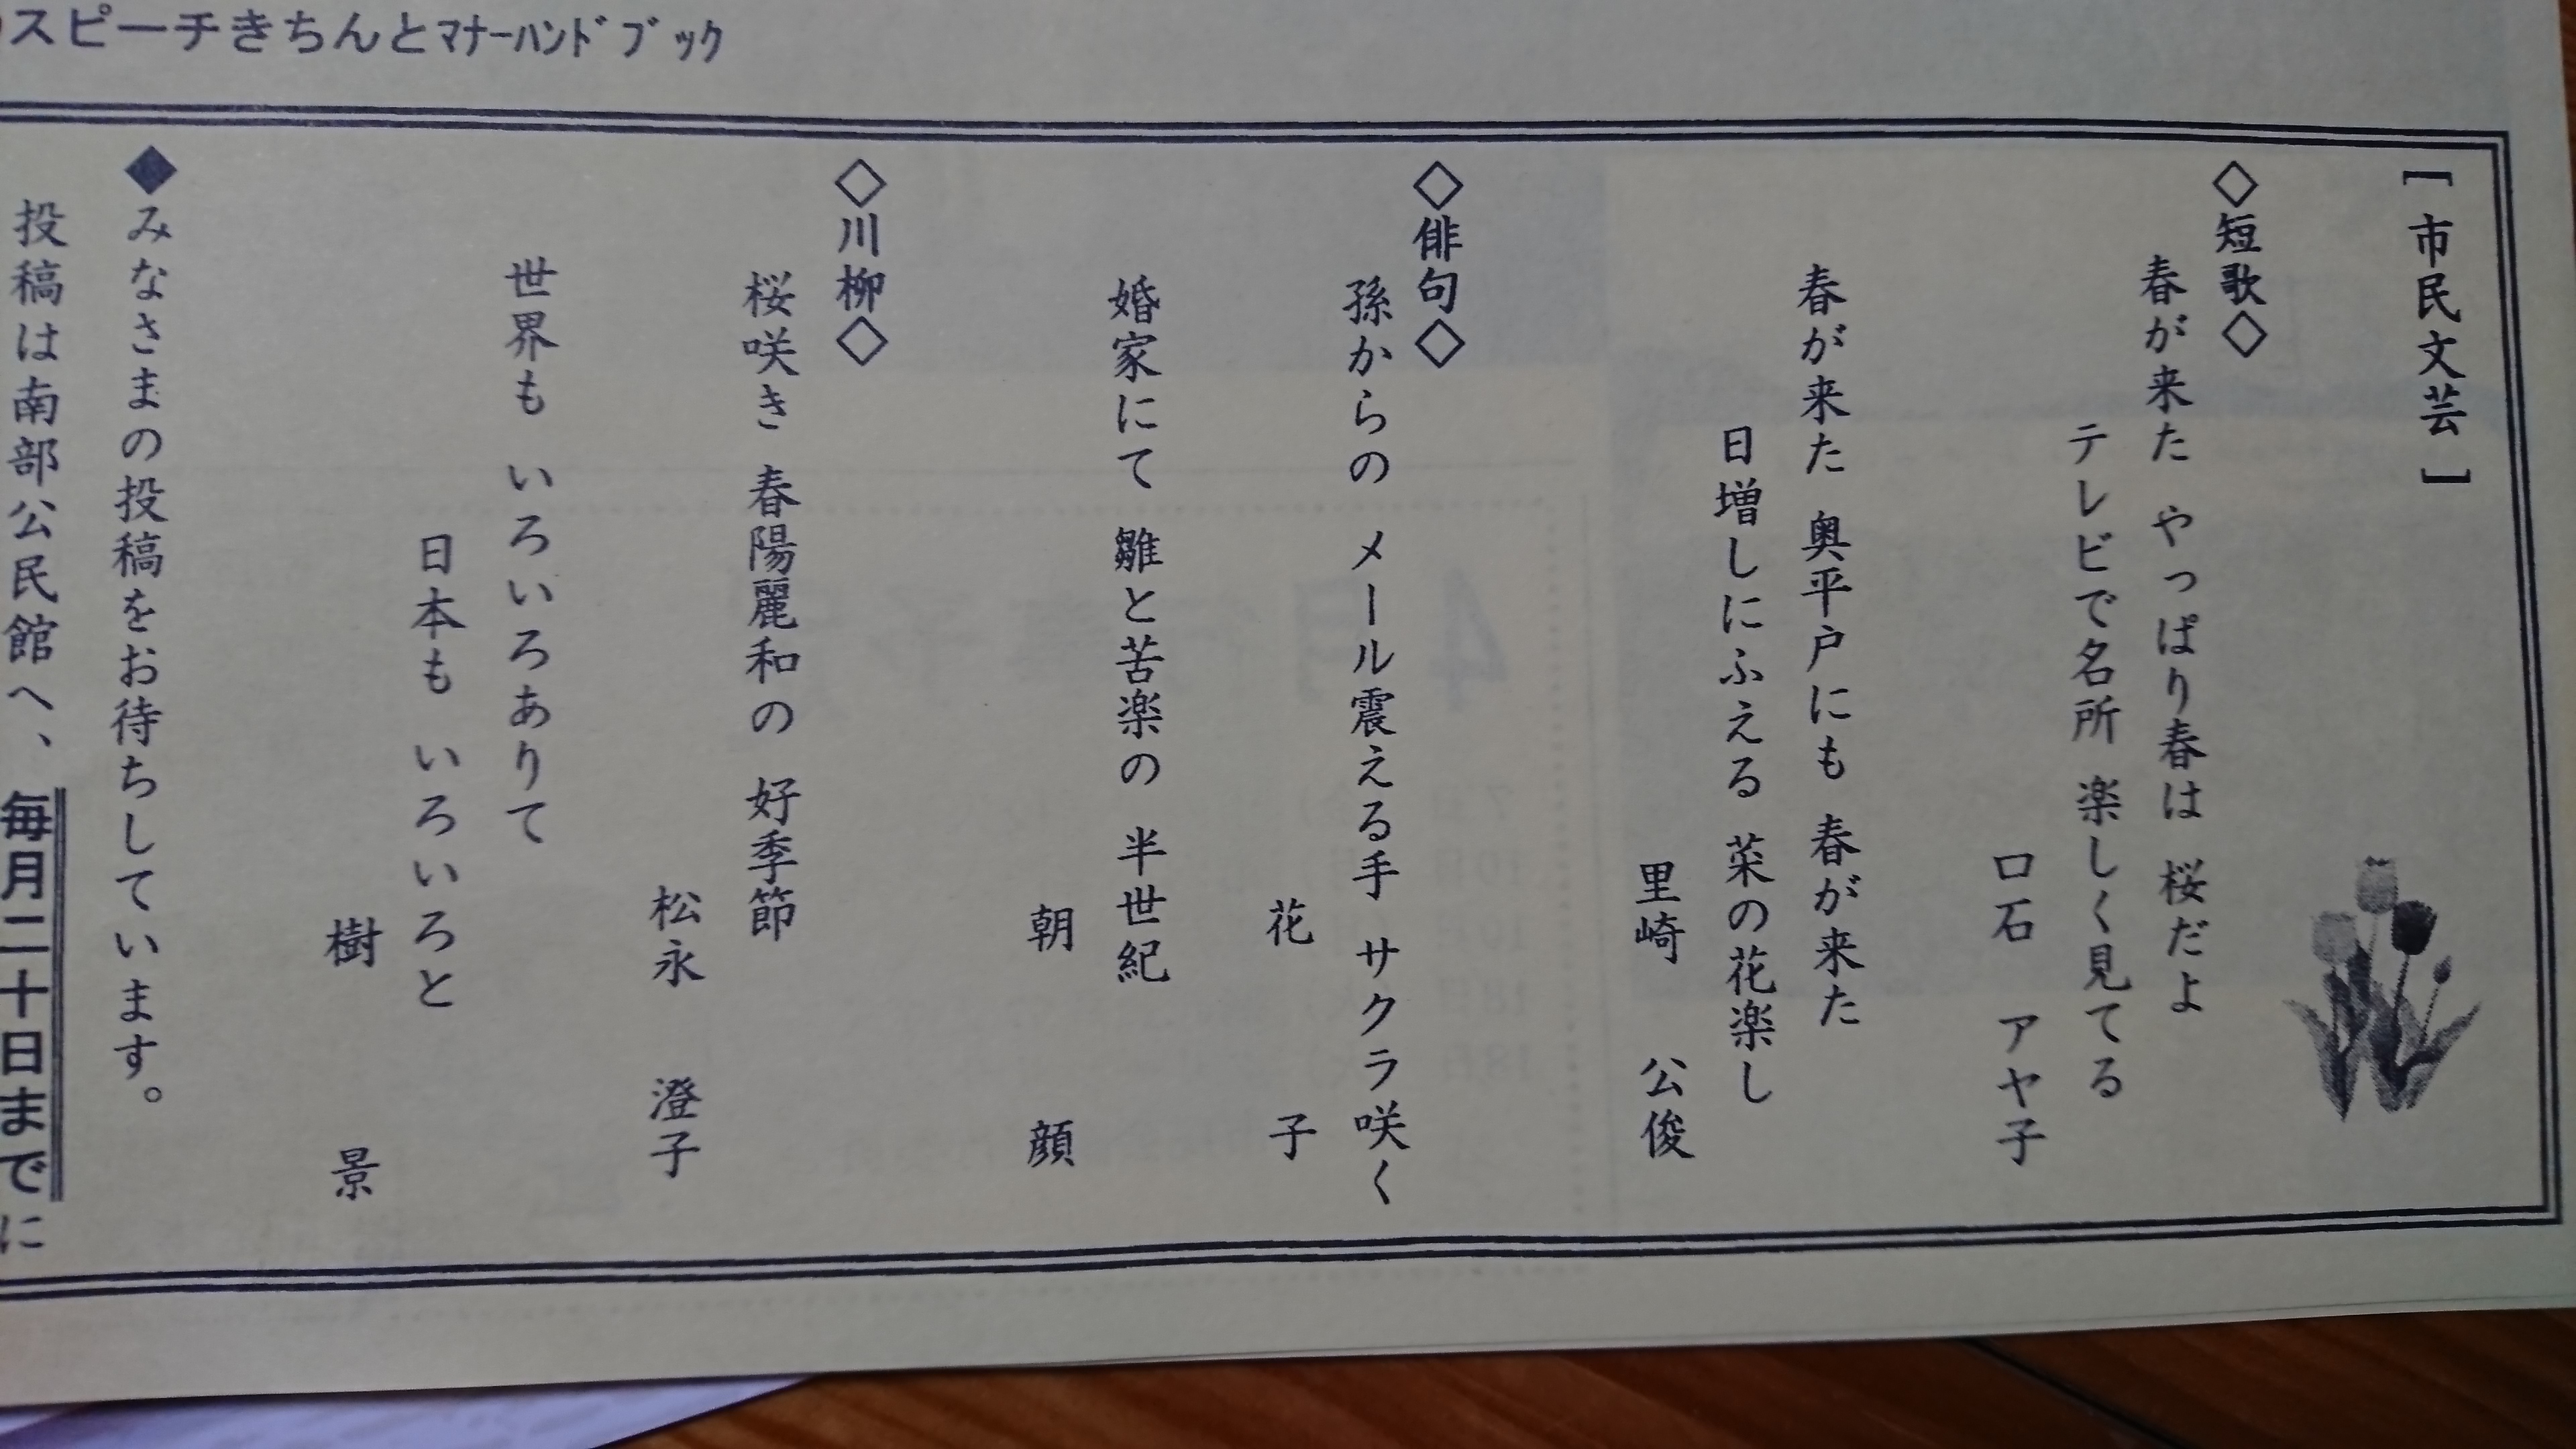 スピーチきちんとﾏﾅｰﾊﾝﾄﾞブック
［ 市民文芸 ］
◇短歌◇
春が来た やっぱり春は 桜だよ
テレビで名所 楽しく見てる
口石 アヤ子
春が来た 奥平戸にも 春が来た
日増しにふえる 菜の花楽し
里崎 公俊
◇俳句◇
孫からの メール震える手 サクラ咲く
花 子
婚家にて 雛と苦楽の 半世紀
朝 顔
◇川柳◇
桜咲き 春陽麗和の 好季節
松永 澄子
世界も いろいろありて
日本も いろいろと
樹 景
◆みなさまの投稿をお待ちしています。
投稿は南部公民館へ、毎月二十日までに